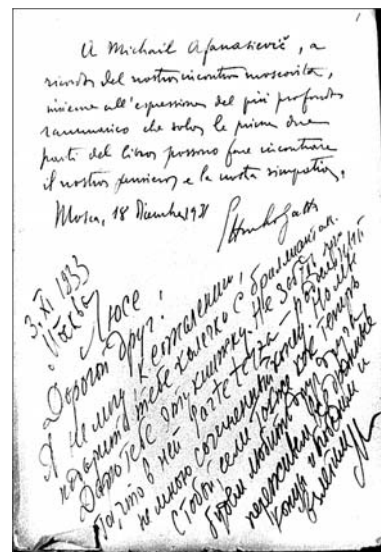 1
A Michail Afanasievič, a
ricordo del nostro incontro moscovita,
insieme all'espressione del più profondo
rammarico che solo le prime due
parti del libro possono fare incontrare
il nostro pensiero e la nostra simpatia.
Mosca, 18 Dicembre 1931
3. XI 1933
Москва
Люсе
Дорогой друг!
Я не могу, к сожалению,
подарить тебе колечко с брильянтом.
Дарю тебе эту книжку. Не забудь
то, что в ней parte terza —
не много сочиненный конец. Но мы
с тобой, если также как теперь
будем любить друг друга,
переживем все дрянные
концы и победим и
взлетим